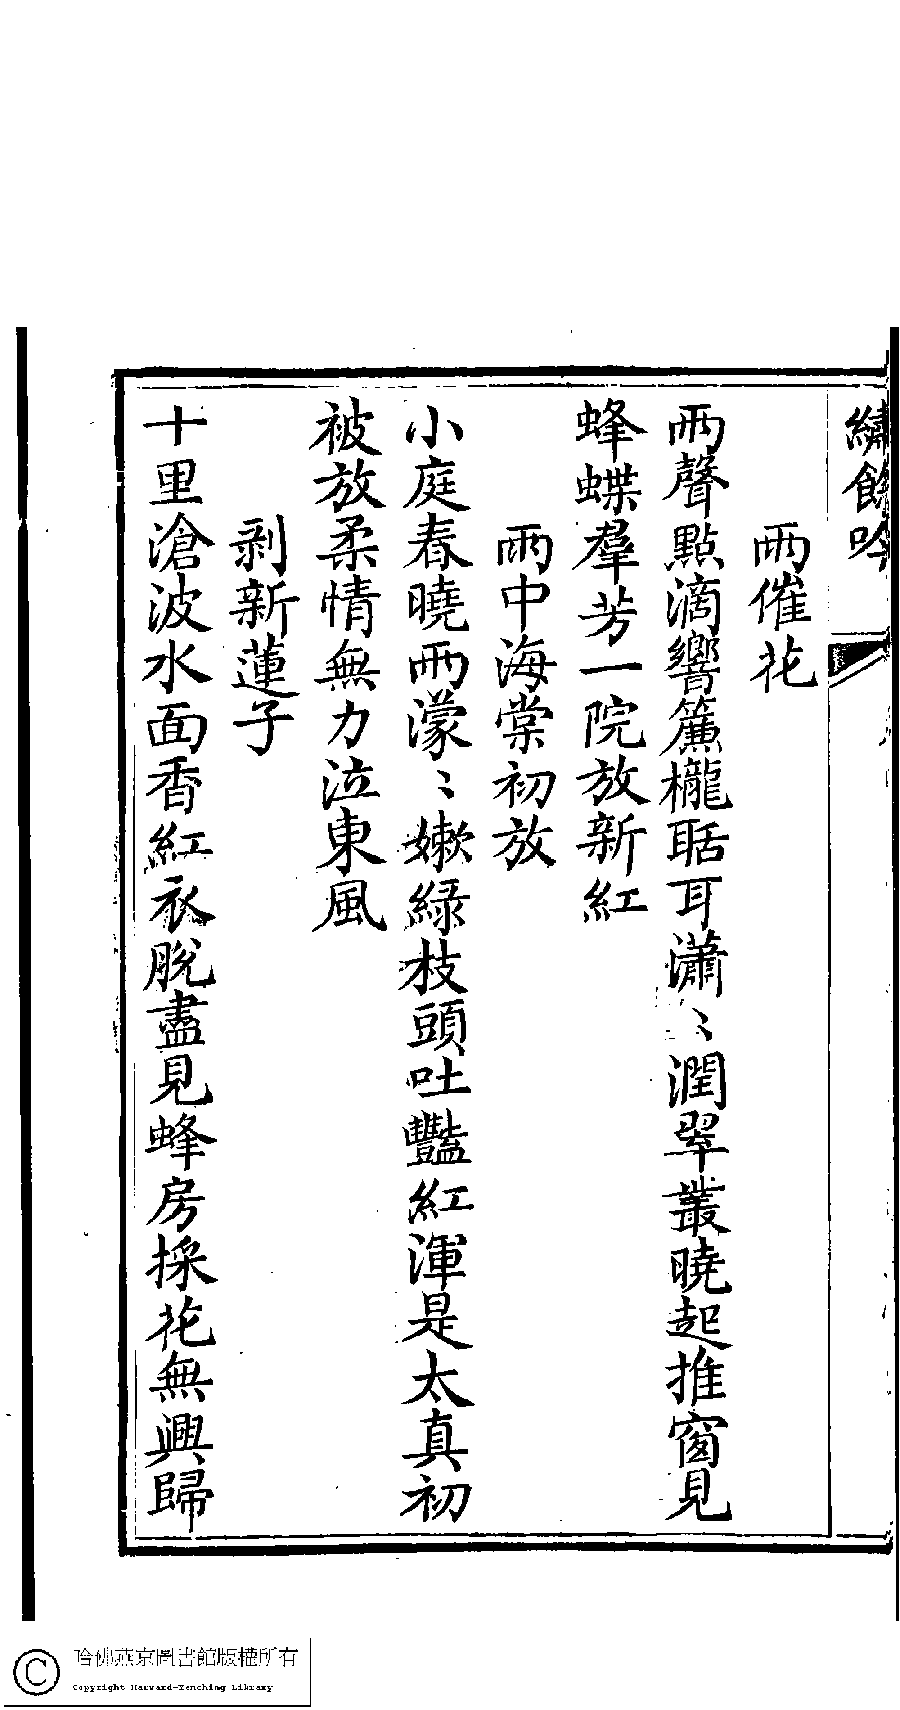 繡餘吟
雨催花
雨聲點滴響簾櫳聒耳瀟〻潤翠叢曉起推窗見
蜂蝶羣芳一院放新紅
雨中海棠初放
小庭春曉雨濛〻嫩綠枝頭吐豔紅渾是太真初
被放柔情無力泣東風
剥新蓮子
十里滄波水面香紅衣脫盡見蜂房採花無興歸
哈佛燕京圖書館版權所有
Copyright Harvard-Yenching Library